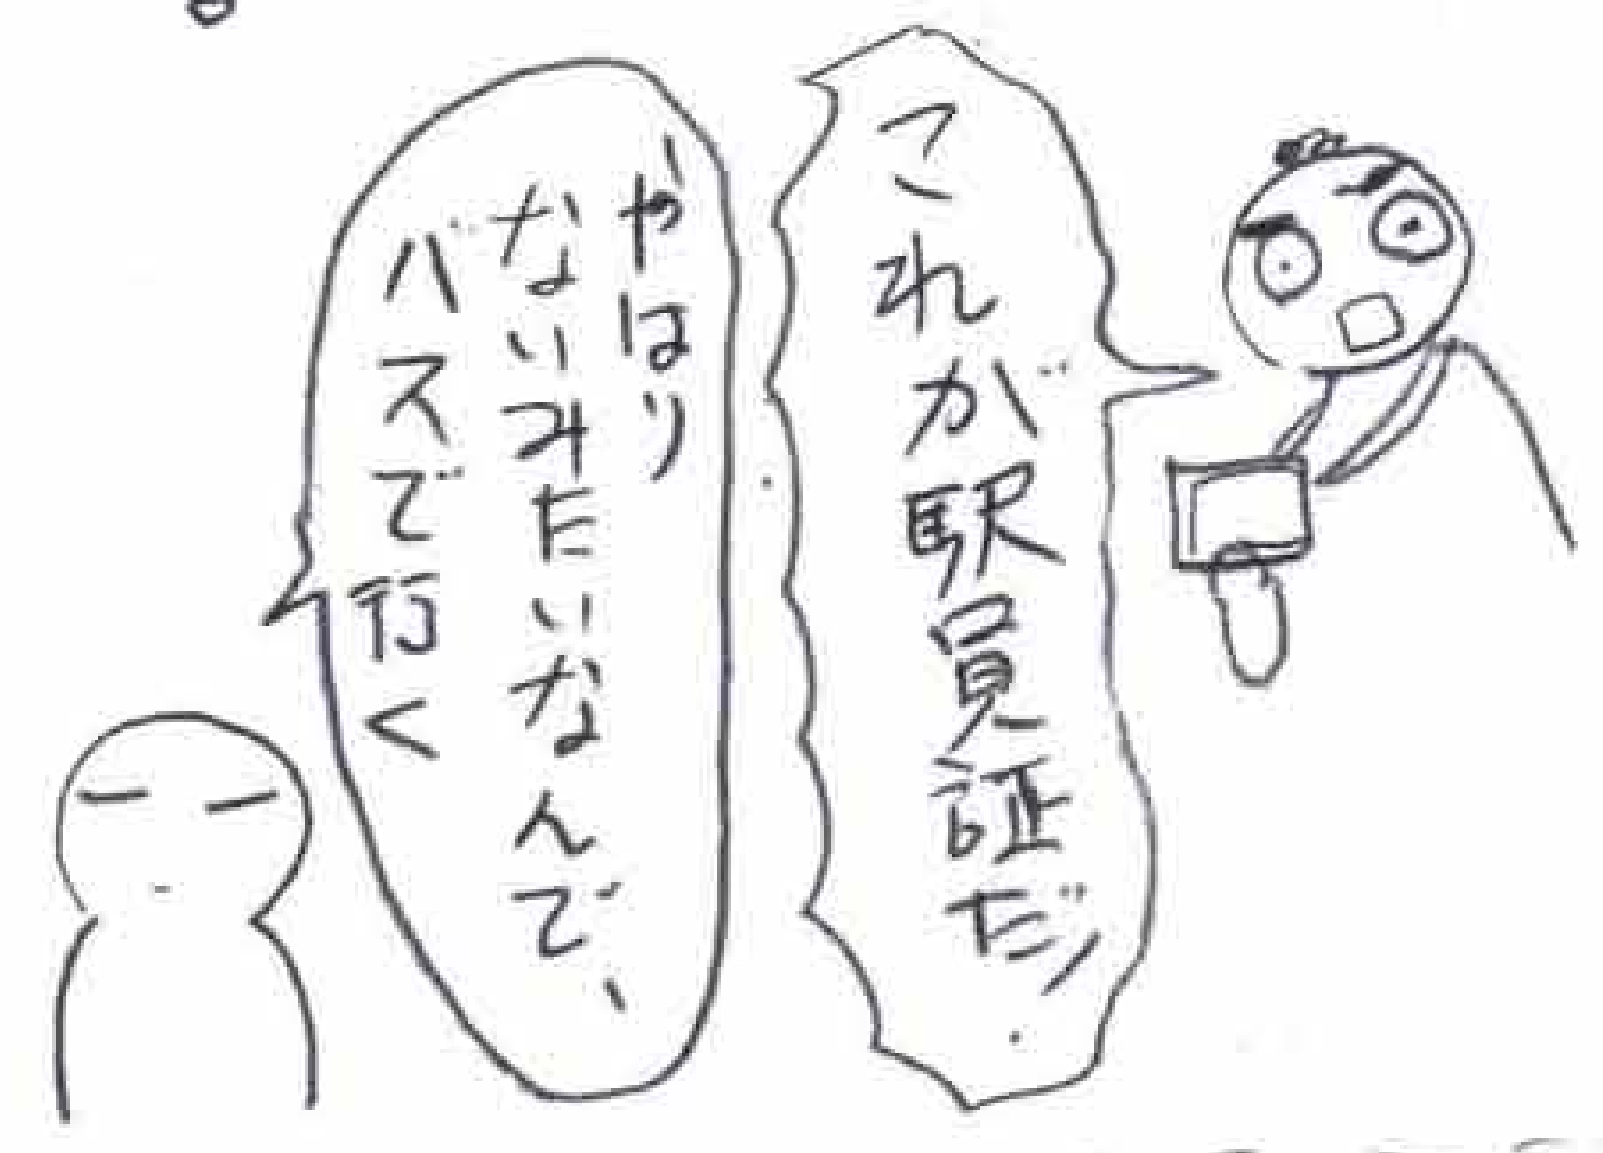 これが駅員証だ!
やはり
ないみたいなんで、
バスで行く